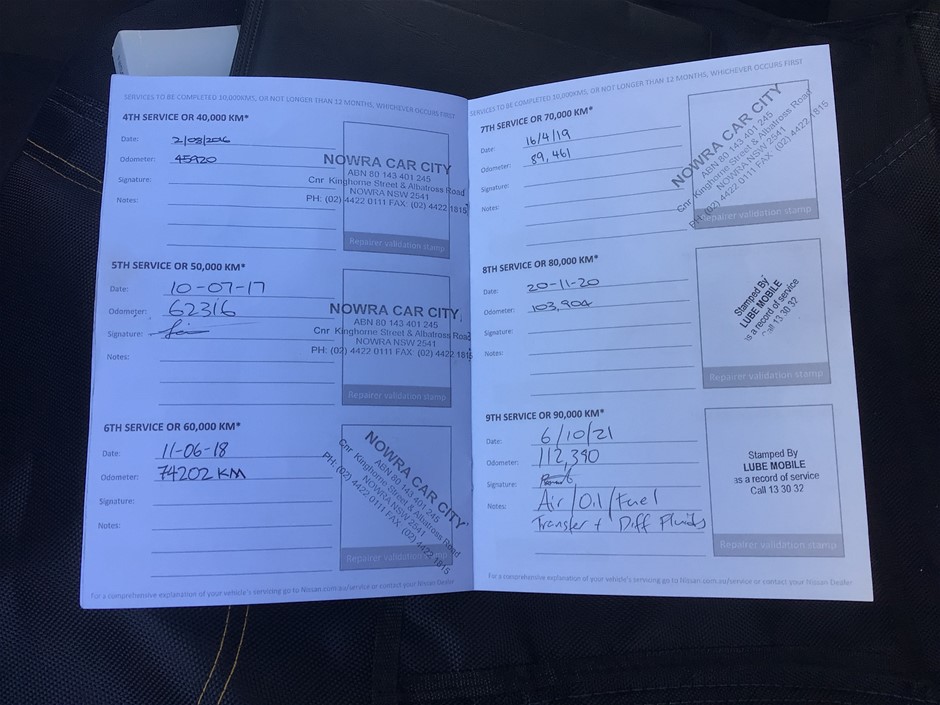 SERVICES TO BE COMPLETED 10,000KMS, OR NOT LONGER THAN 12 MONTHS, WHICHEVER OCCURS FIRST
4TH SERVICE OR 40,000 KM*
Date: 2/08/2016
Odometer: 45920
Signature:
Notes:
NOWRA CAR CITY
ABN 80 143 401 245
Cnr Kinghorne Street & Albatross Road
NOWRA NSW 2541
PH: (02) 4422 0111 FAX (02) 4422 1815
Repairer validation stamp
5TH SERVICE OR 50,000 KM*
Date: 10-07-17
Odometer: 62316
Signature:
Notes:
NOWRA CAR CITY
ABN 80 143 401 245
Cnr Kinghorne Street & Albatross Road
NOWRA NSW 2541
PH: (02) 4422 0111 FAX (02) 4422 1815
Repairer validation stamp
6TH SERVICE OR 60,000 KM*
Date: 11-06-18
Odometer: 74202 KM
Signature:
Notes:
NOWRA CAR CITY
ABN 80 143 401 245
Cnr Kinghorne Street & Albatross Road
NOWRA NSW 2541
PH: (02) 4422 0111 FAX (02) 4422 1815
Repairer validation stamp
For a comprehensive explanation of your vehicle's servicing go to Nissan.com.au/service or contact your Nissan Dealer
SERVICES TO BE COMPLETED 10,000KMS, OR NOT LONGER THAN 12 MONTHS, WHICHEVER OCCURS FIRST
7TH SERVICE OR 70,000 KM*
Date: 16/4/19
Odometer: 89,461
Signature:
Notes:
NOWRA CAR CITY
ABN 80 143 401 245
Cnr Kinghorne Street & Albatross Road
NOWRA NSW 2541
PH: (02) 4422 0111 FAX (02) 4422 1815
Repairer validation stamp
8TH SERVICE OR 80,000 KM*
Date: 20-11-20
Odometer: 103,904
Signature:
Notes:
Stamped By
LUBE MOBILE
as a record of service
Call 13 30 32
Repairer validation stamp
9TH SERVICE OR 90,000 KM*
Date: 6/10/21
Odometer: 112,390
Signature:
Notes: Air/Oil/Fuel
Transfer + Diff Fluids
Stamped By
LUBE MOBILE
as a record of service
Call 13 30 32
Repairer validation stamp
For a comprehensive explanation of your vehicle's servicing go to Nissan.com.au/service or contact your Nissan Dealer